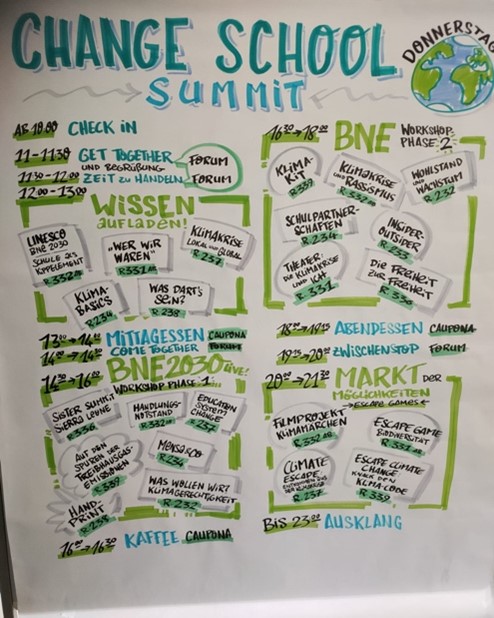 CHANGE SCHOOL
SUMMIT
DONNERSTAG
AB 10.00 CHECK IN
11-11³⁰ GET TOGETHER
UND BEGRÜßUNG
FORUM
11³⁰-12⁰⁰ ZEIT ZU HANDELN
FORUM
12⁰⁰-13⁰⁰
WISSEN
AUFLADEN!
UNESCO
BNE 2030
SCHULE ALS
KOPPELEMENT
"WER WIR
WAREN"
KLIMAKRISE
LOKAL UND GLOBAL
R 237
KLIMA-
BASICS
R 234
WAS DARF'S
SEIN?
R 238
MITTAGESSEN CAUPONA
14⁰⁰→14³⁰ COME TOGETHER FORUM
14³⁰→16⁰⁰ BNE 2030 LIVE!
WORKSHOP PHASE 1
SIERRA LEONE
R 336
HANDLUNGS-
NOTSTAND
EDUCATION
SYSTEM
CHANGE
R 237
AUF DEN
SPUREN DER
TREIBHAUSGAS-
EMISSIONEN
R 339
R 234
WAS WOLLEN WIR?
KLIMAGERECHTIGKEIT
R 232
HAND-
PRINT
R 238
16⁰⁰→16³⁰ KAFFEE CAUPONA
16³⁰→18⁰⁰ BNE WORKSHOP-
PHASE 2
KLIMA-
KIT
R 339
KLIMAKRISE
UND
RASSISMUS
WOHLSTAND
UND
WACHSTUM
R 232
SCHULPARTNER-
SCHAFTEN
R 234
INSIDER-
OUTSIDER
THEATER,
DIE KLIMAKRISE
UND ICH
R 331
DIE FREIHEIT
ZUR FREIHEIT
18³⁰→19¹⁵ ABENDESSEN CAUPONA
19¹⁵→20⁰⁰ ZWISCHENSTOP FORUM
20⁰⁰→21³⁰ MARKT DER
MÖGLICHKEITEN
→ESCAPE GAMES←
FILMPROJEKT
KLIMAMÄRCHEN
ESCAPE GAME
BIODIVERSITÄT
CLIMATE
ESCAPE
R 237
ESCAPE CLIMATE
CHANGE
KNACK DEN
KLIMA-CODE
R 339
BIS 23⁰⁰ AUSKLANG